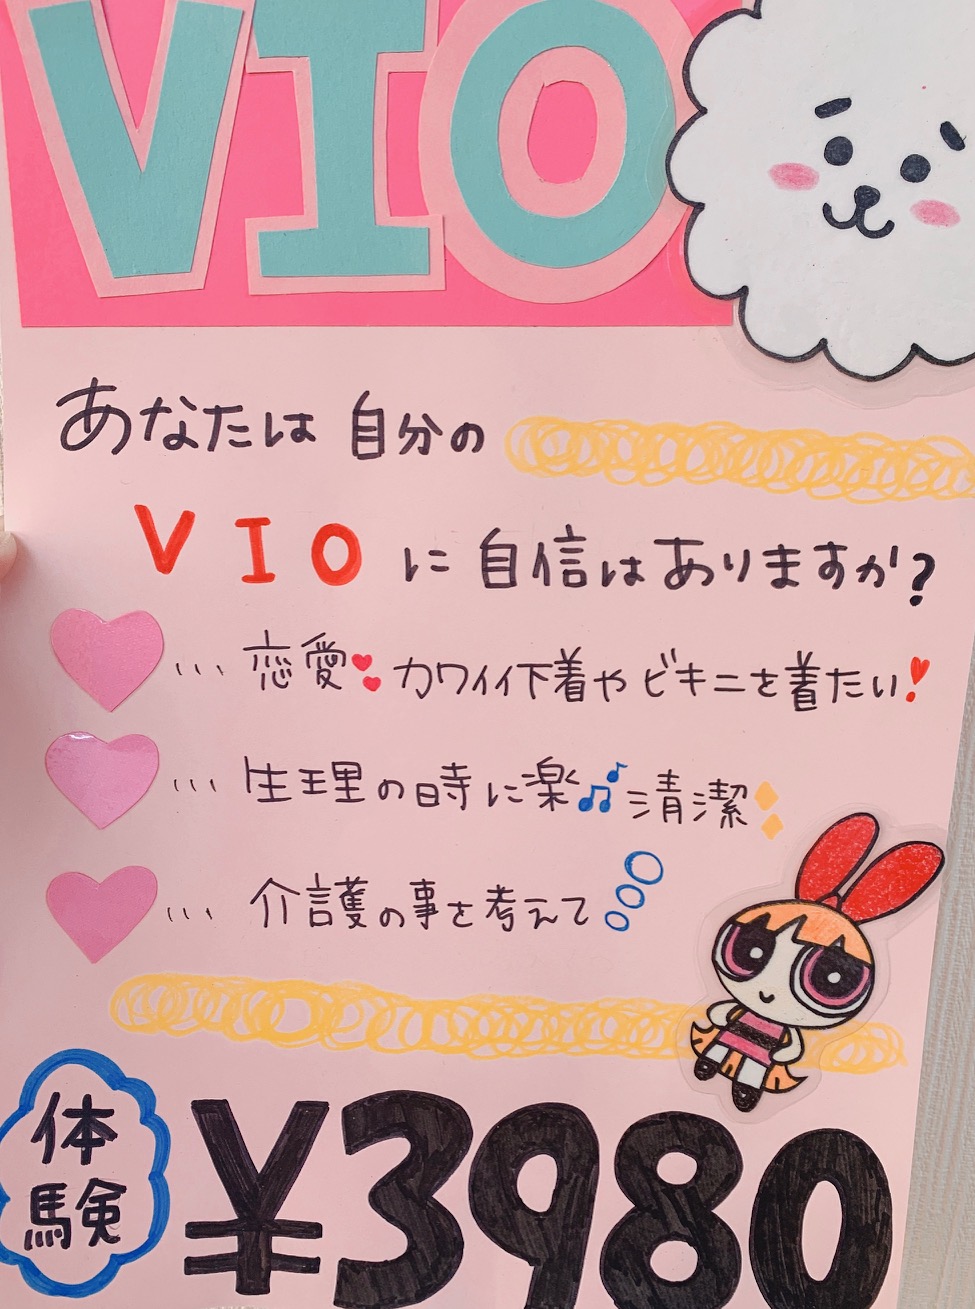 VIO
あなたは 自分の
VIOに自信はありますか?
... 恋愛 カワイイ下着やビキニを着たい!
... 生理の時に楽♫清潔
... 介護の事を考えて
体験
¥3980